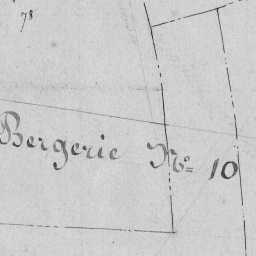 78
Bergerie No 10